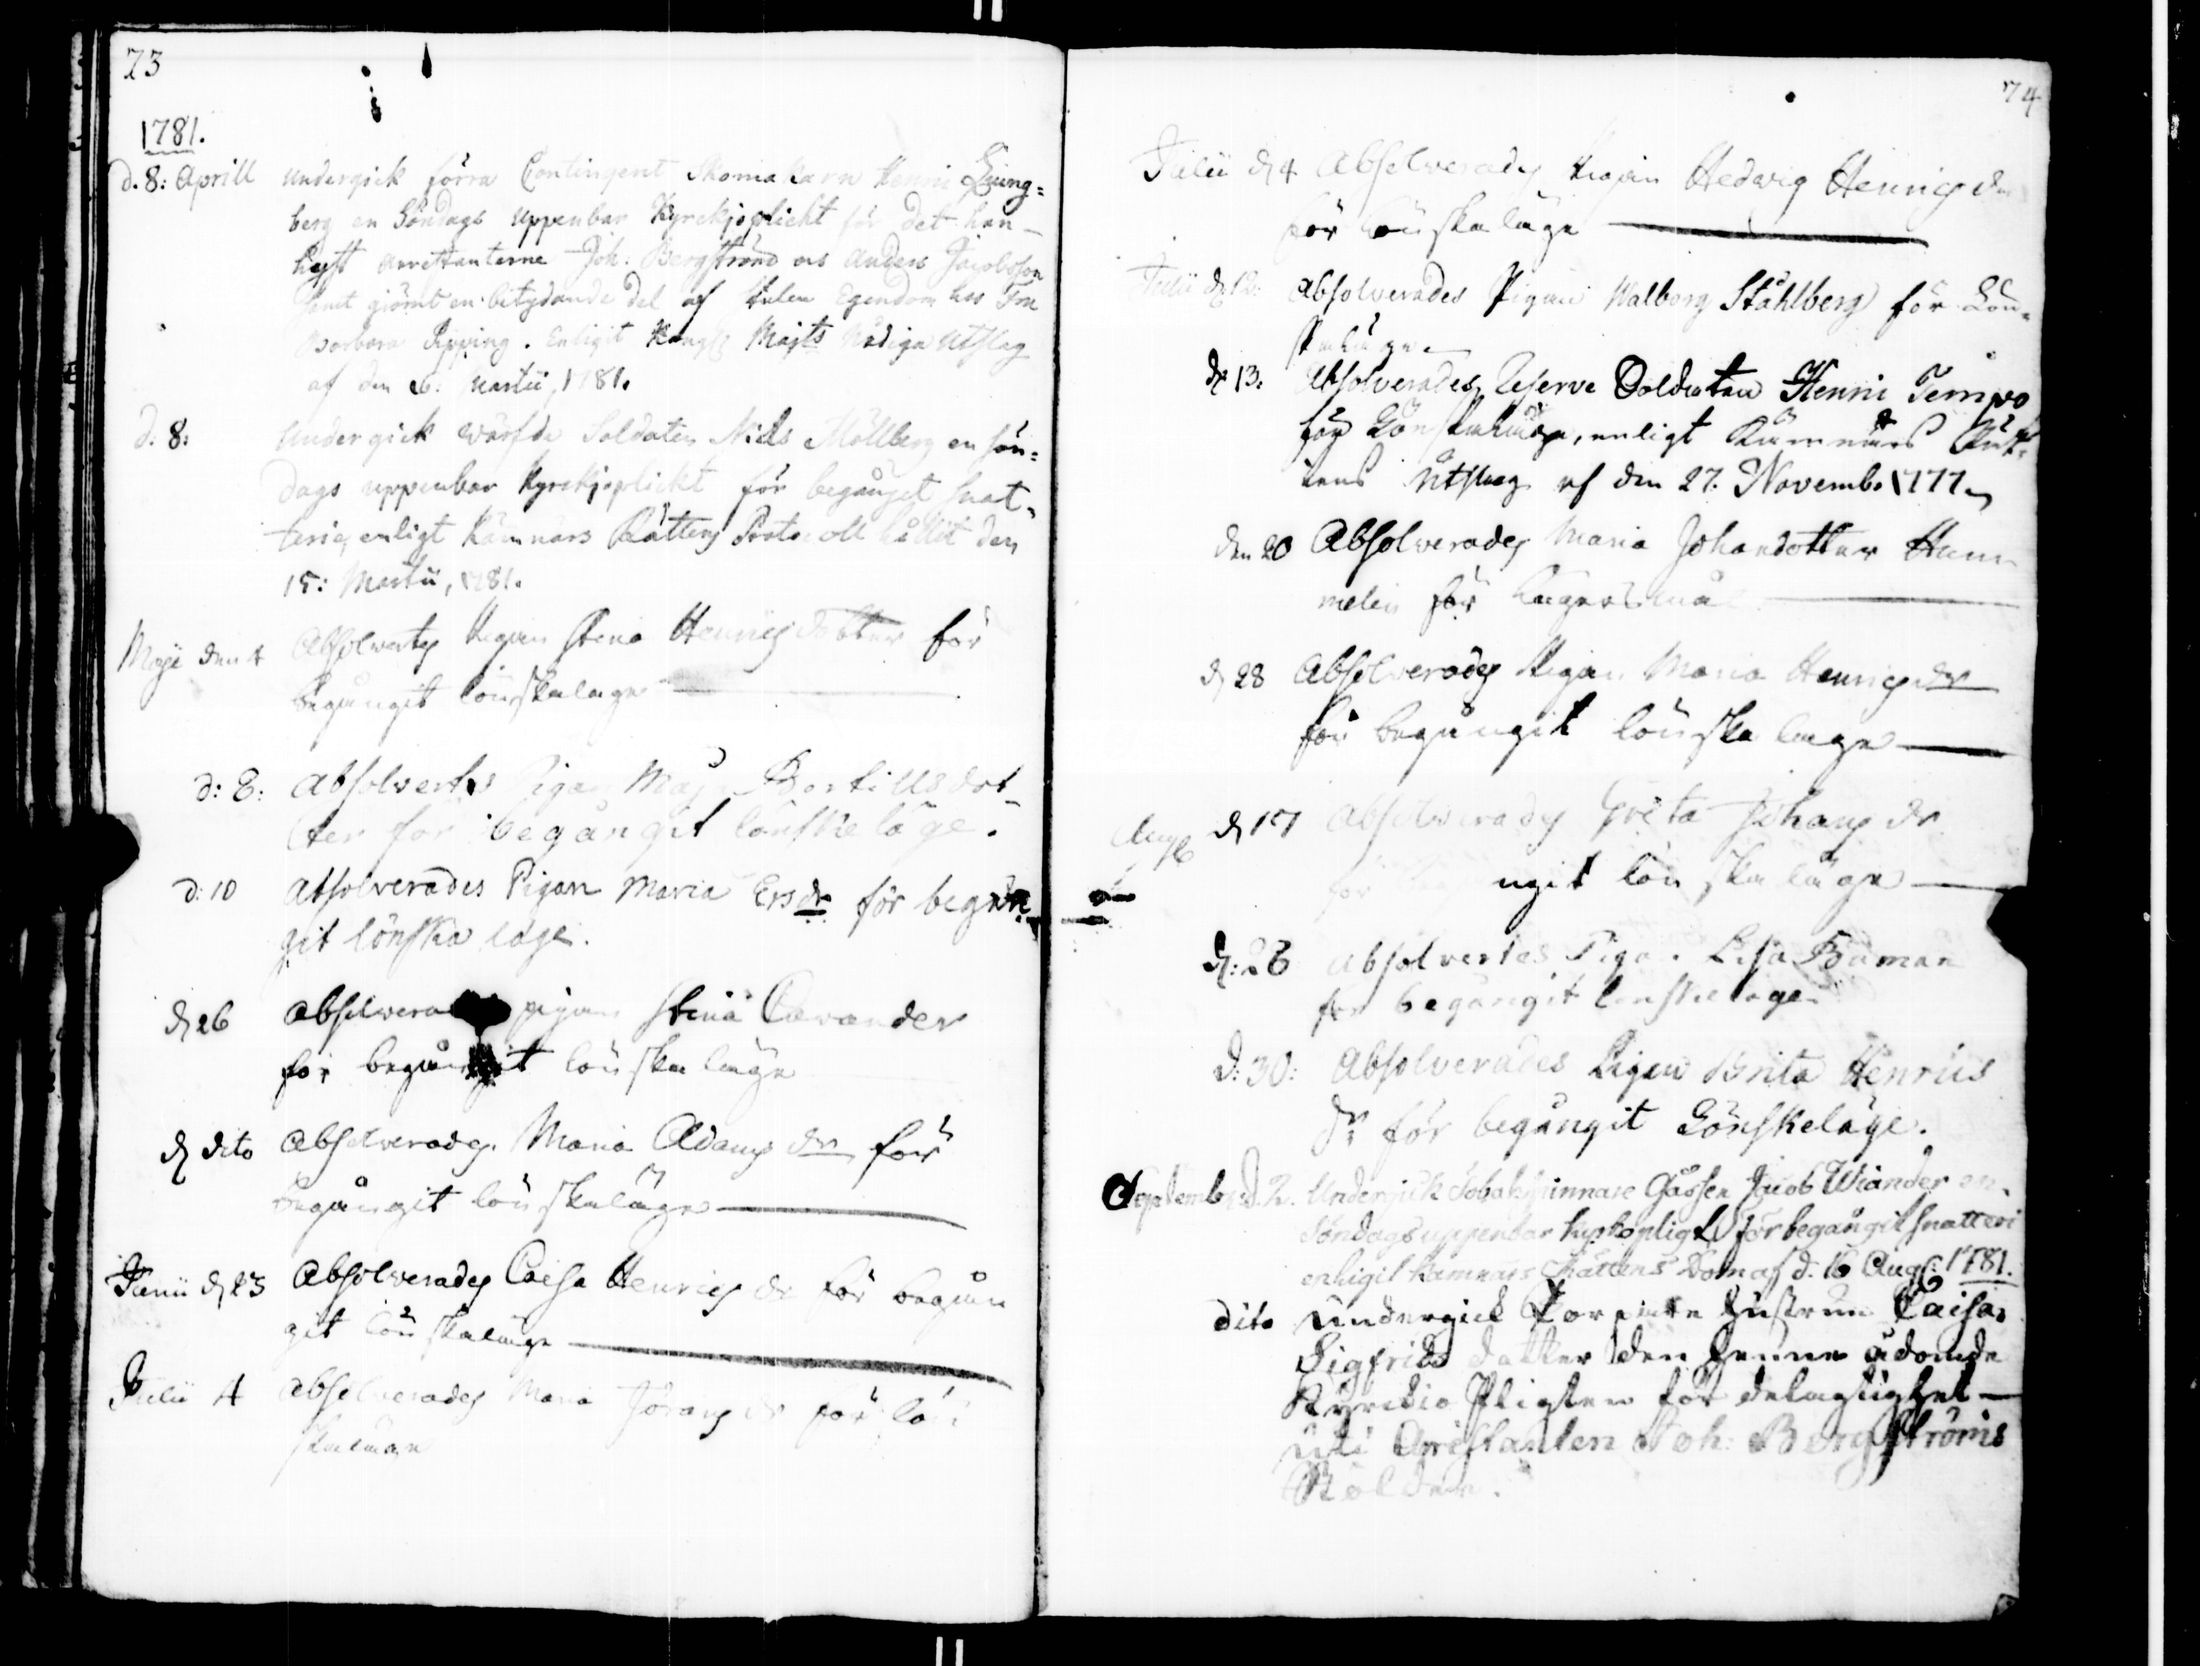 73
1781.
d. 8: Aprill undergick förra Contingent Skomakaren Henric Liung=
berg en Söndags uppenbar Kyrckjoplicht för det han
hyst arrestanterne Joh. Bergström os Anders Jacobsson
samt giömt en betydande del af stulen Egendom hos Fru
Barbara Ripping. Enligit Kongl Majts Nådiga Utslag
af den 26. Martii, 1781.
d. 8: undergick wärfde Soldaten Nils Möllberg en sön=
dags uppenbar Kyrckjoplickt för begånget snat=
terie, enligt Kämnärs Rättens Protocoll hållit den
15: Martii, 1781.
Maji den 4 Absolvertes Pigan Stina Henricsdotter för
begångit lönskaläge
d: 8: Absolvertes Pigan Maja Bertillsdot=
ter för begångit lönskeläge.
d: 10 Absolverades Pigan Maria Ersdr för begån
git lönska läge.
d 26 Absolvera pigan Stina Cavander
för begångit lönskaläge
d dito Absolverades Maria Adams dr för
begångit lönskaläge
Junii d 23 Absolverades Caisa Henrics dr för begån
git lönskaläge
Julii 4 Absolverades Maria Jörans dr för lön
skaläge
74
Julii d 4 Absolverades Pigan Hedvig Henrics dr
för lönskaläge
Julii d 12: Absolverades Pigan Walborg Ståhlberg för Lön=
skaläge
d 13: Absolverades Reserve Soldaten Henric Tempo
för Lönskaläge, enligt Kämnärs Rät=
tens Utslag af den 27. Novemb. 1777
den 20 Absolverades Maria Johansdotter Hum
melin för lägersmål
d 28 Absolverades Pigan Maria Henrics dr
för begångit lönskaläge
Aug d 17 Absolverades Greta Johans dr
för begångit lönskaläge
d: 28 Absolvertes Pigan Lisa Båman
för begångit lönskeläge
d: 30: Absolverades Pigan Brita Henrics
dr för begångit Lönskeläge.
Septembr d. 2. Undergick Tobakspinnare Gåssen Jacob Wiander en
Söndags uppenbar kyrkopligt för begångit snatteri
enligit Kämnärs Rättens Dom af d. 16 Aug: 1781.
dito undergick hustrun Caisa
Sigfrids datter den henne ådömde
Kyrckio Pligten för delagtighet
uti Arrestanten Joh: Bergströms
Stölder.